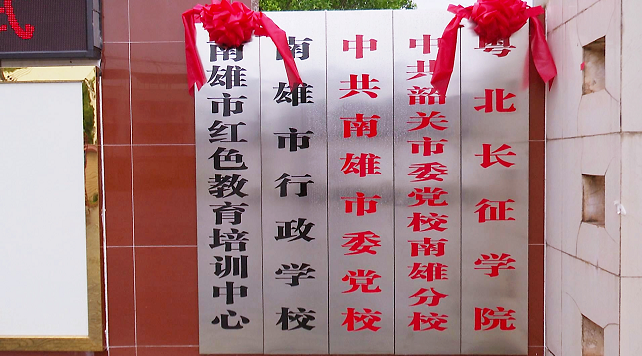 南雄市红色教育培训中心
南雄市行政学校
中共南雄市委党校
中共韶关市委党校南雄分校
粤北长征学院